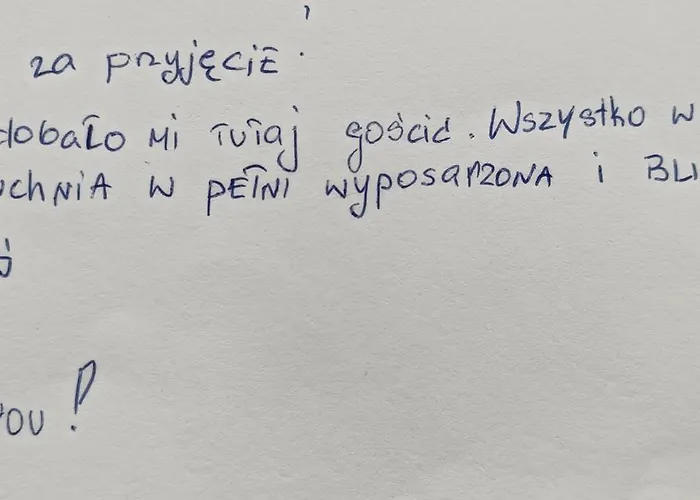 za przyjęcie!
dobało mi tutaj gościć. Wszystko w
uchnia w pełni wyposarzona i BLI
j
you!